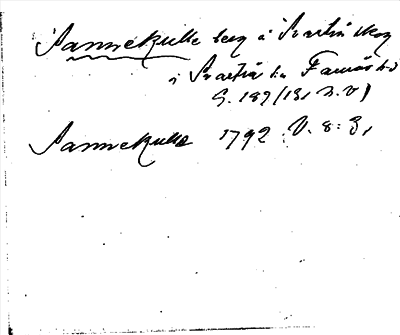 Sannekulle berg å Svartrå skog
i Svartrå sn Faurås hd
S. 189 (151 n. v)
Sannekulle 1792 V. 8: 3,